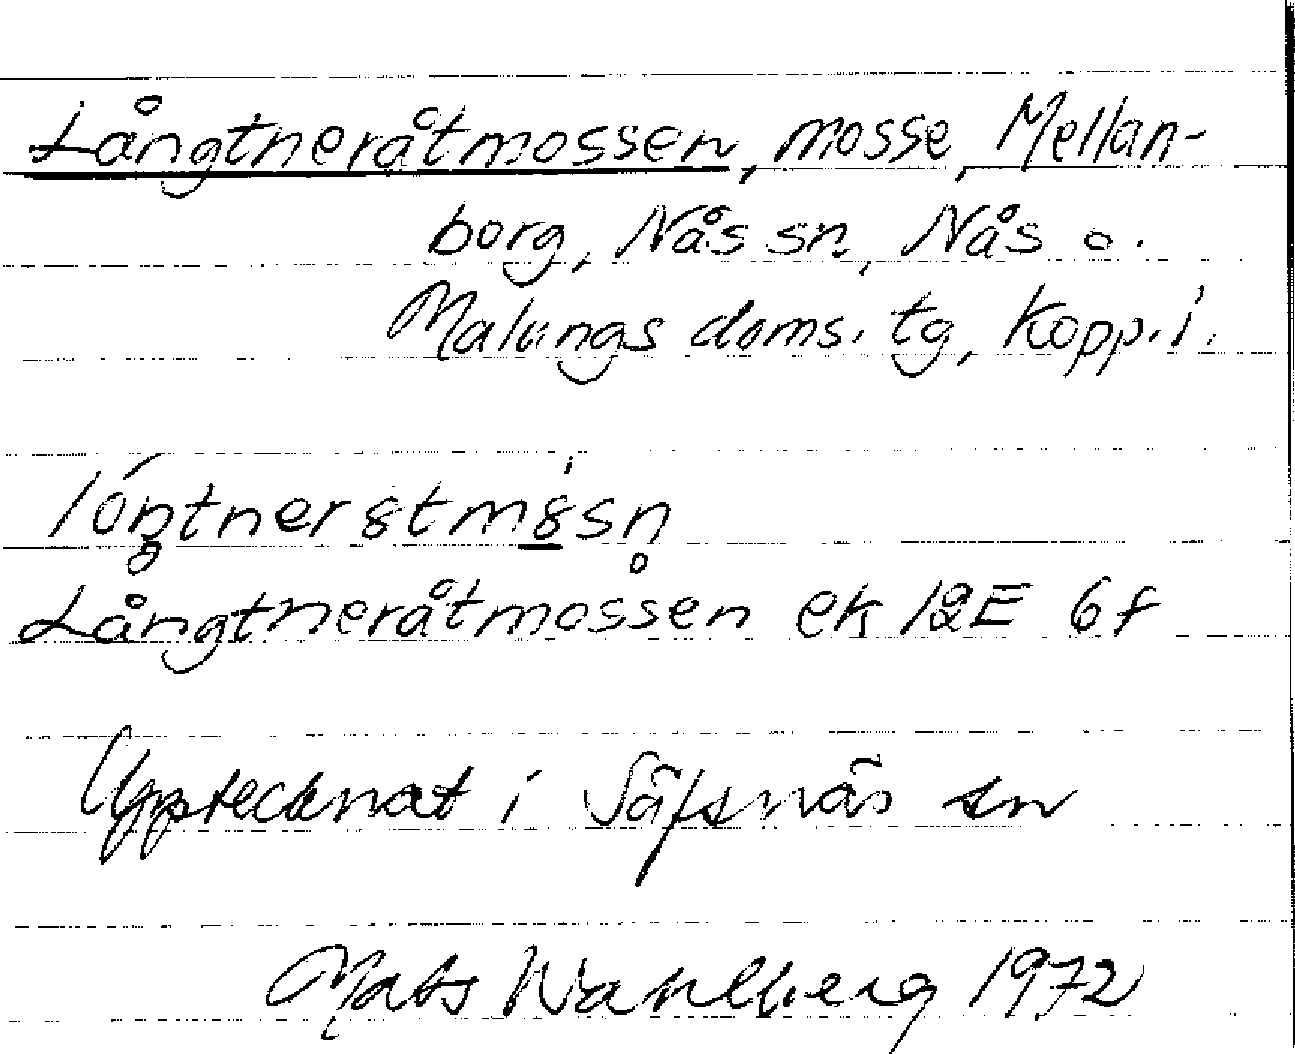 Långtneråtmossen, mosse, Mellan-
borg, Nås sn, Nås o.
Malungs doms. tg, Kopp. l.
Långtneråtmossen ek 12E 6f
Upptecknat i Säfsnäs sn
Mats Wahlberg 1972